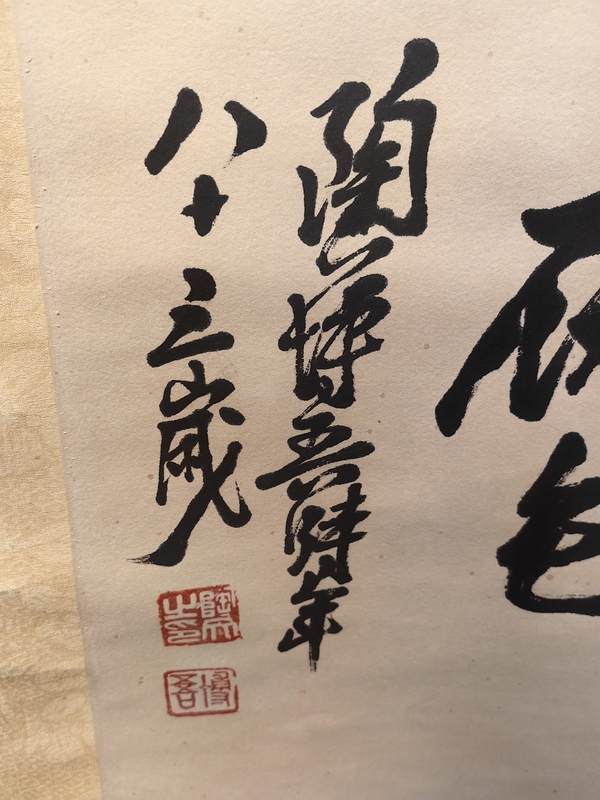 陶博吾時年
八十三歲
陶文之印
博吾